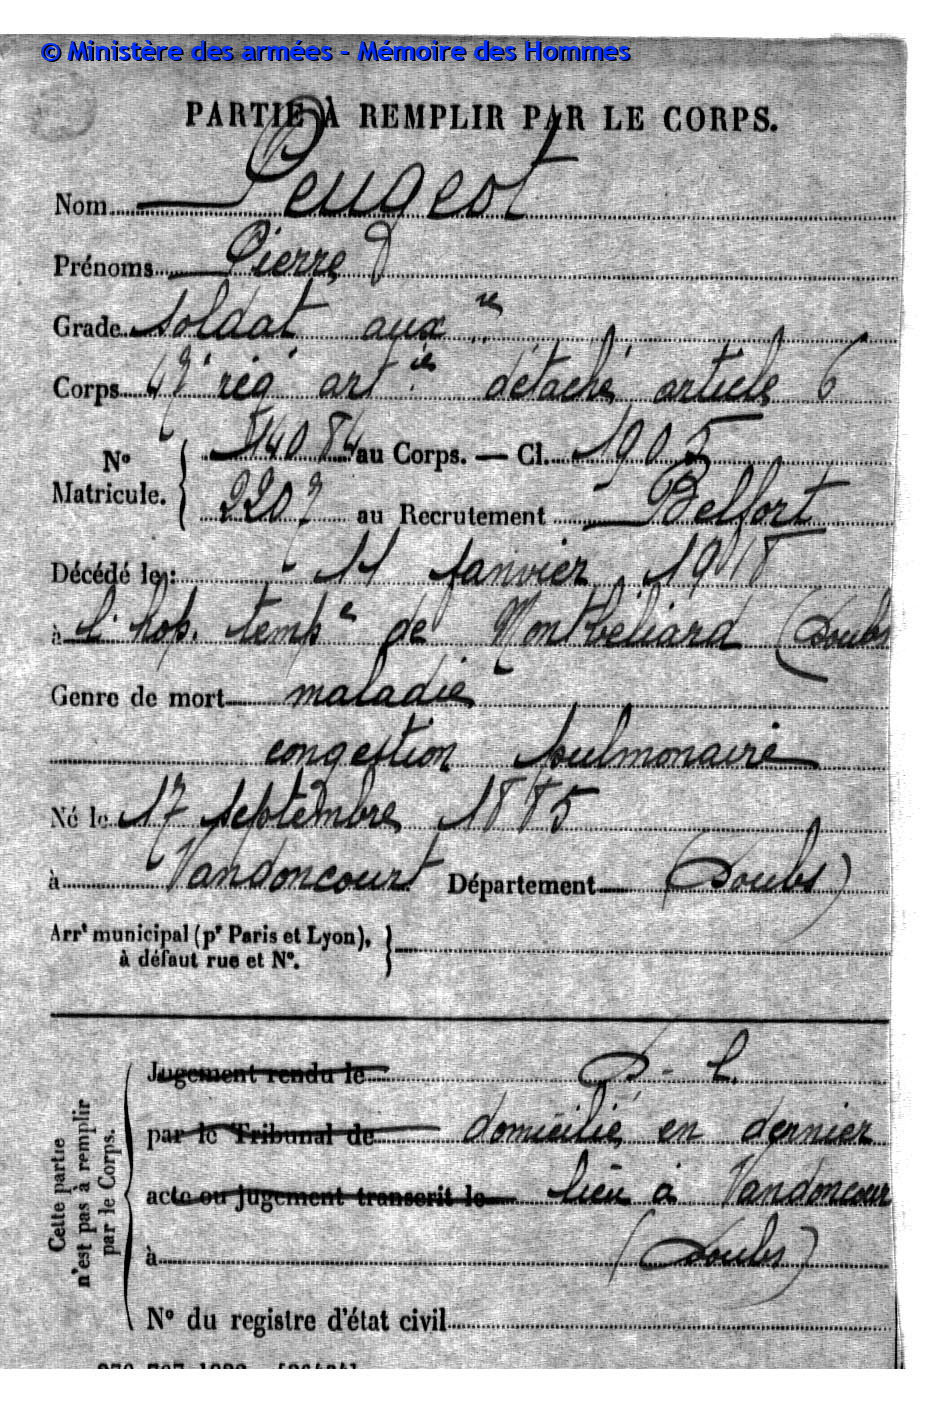 © Ministère des armées - Mémoire des Hommes
PARTIE À REMPLIR PAR LE CORPS.
Nom Peugeot
Prénoms Pierre
Grade Soldat auxre
Corps 47e rég artie détaché article 6
No Matricule. 54084 au Corps. — Cl. 1905
2207 au Recrutement Belfort
Décédé le: 11 Janvier 1918
à l'hop. tempre de Montbéliard (Doubs
Genre de mort maladie
congestion pulmonaire
Né le 17 septembre 1885
à Vandoncourt Département (Doubs)
Arrt municipal (pr Paris et Lyon),
à défaut rue et No.
Cette partie
n'est pas à remplir
par le Corps.
Jugement rendu le D. L.
par le Tribunal de domicilié en dernier
acte ou jugement transcrit le lieu à Vandoncour
à (Doubs)
No du registre d'état civil